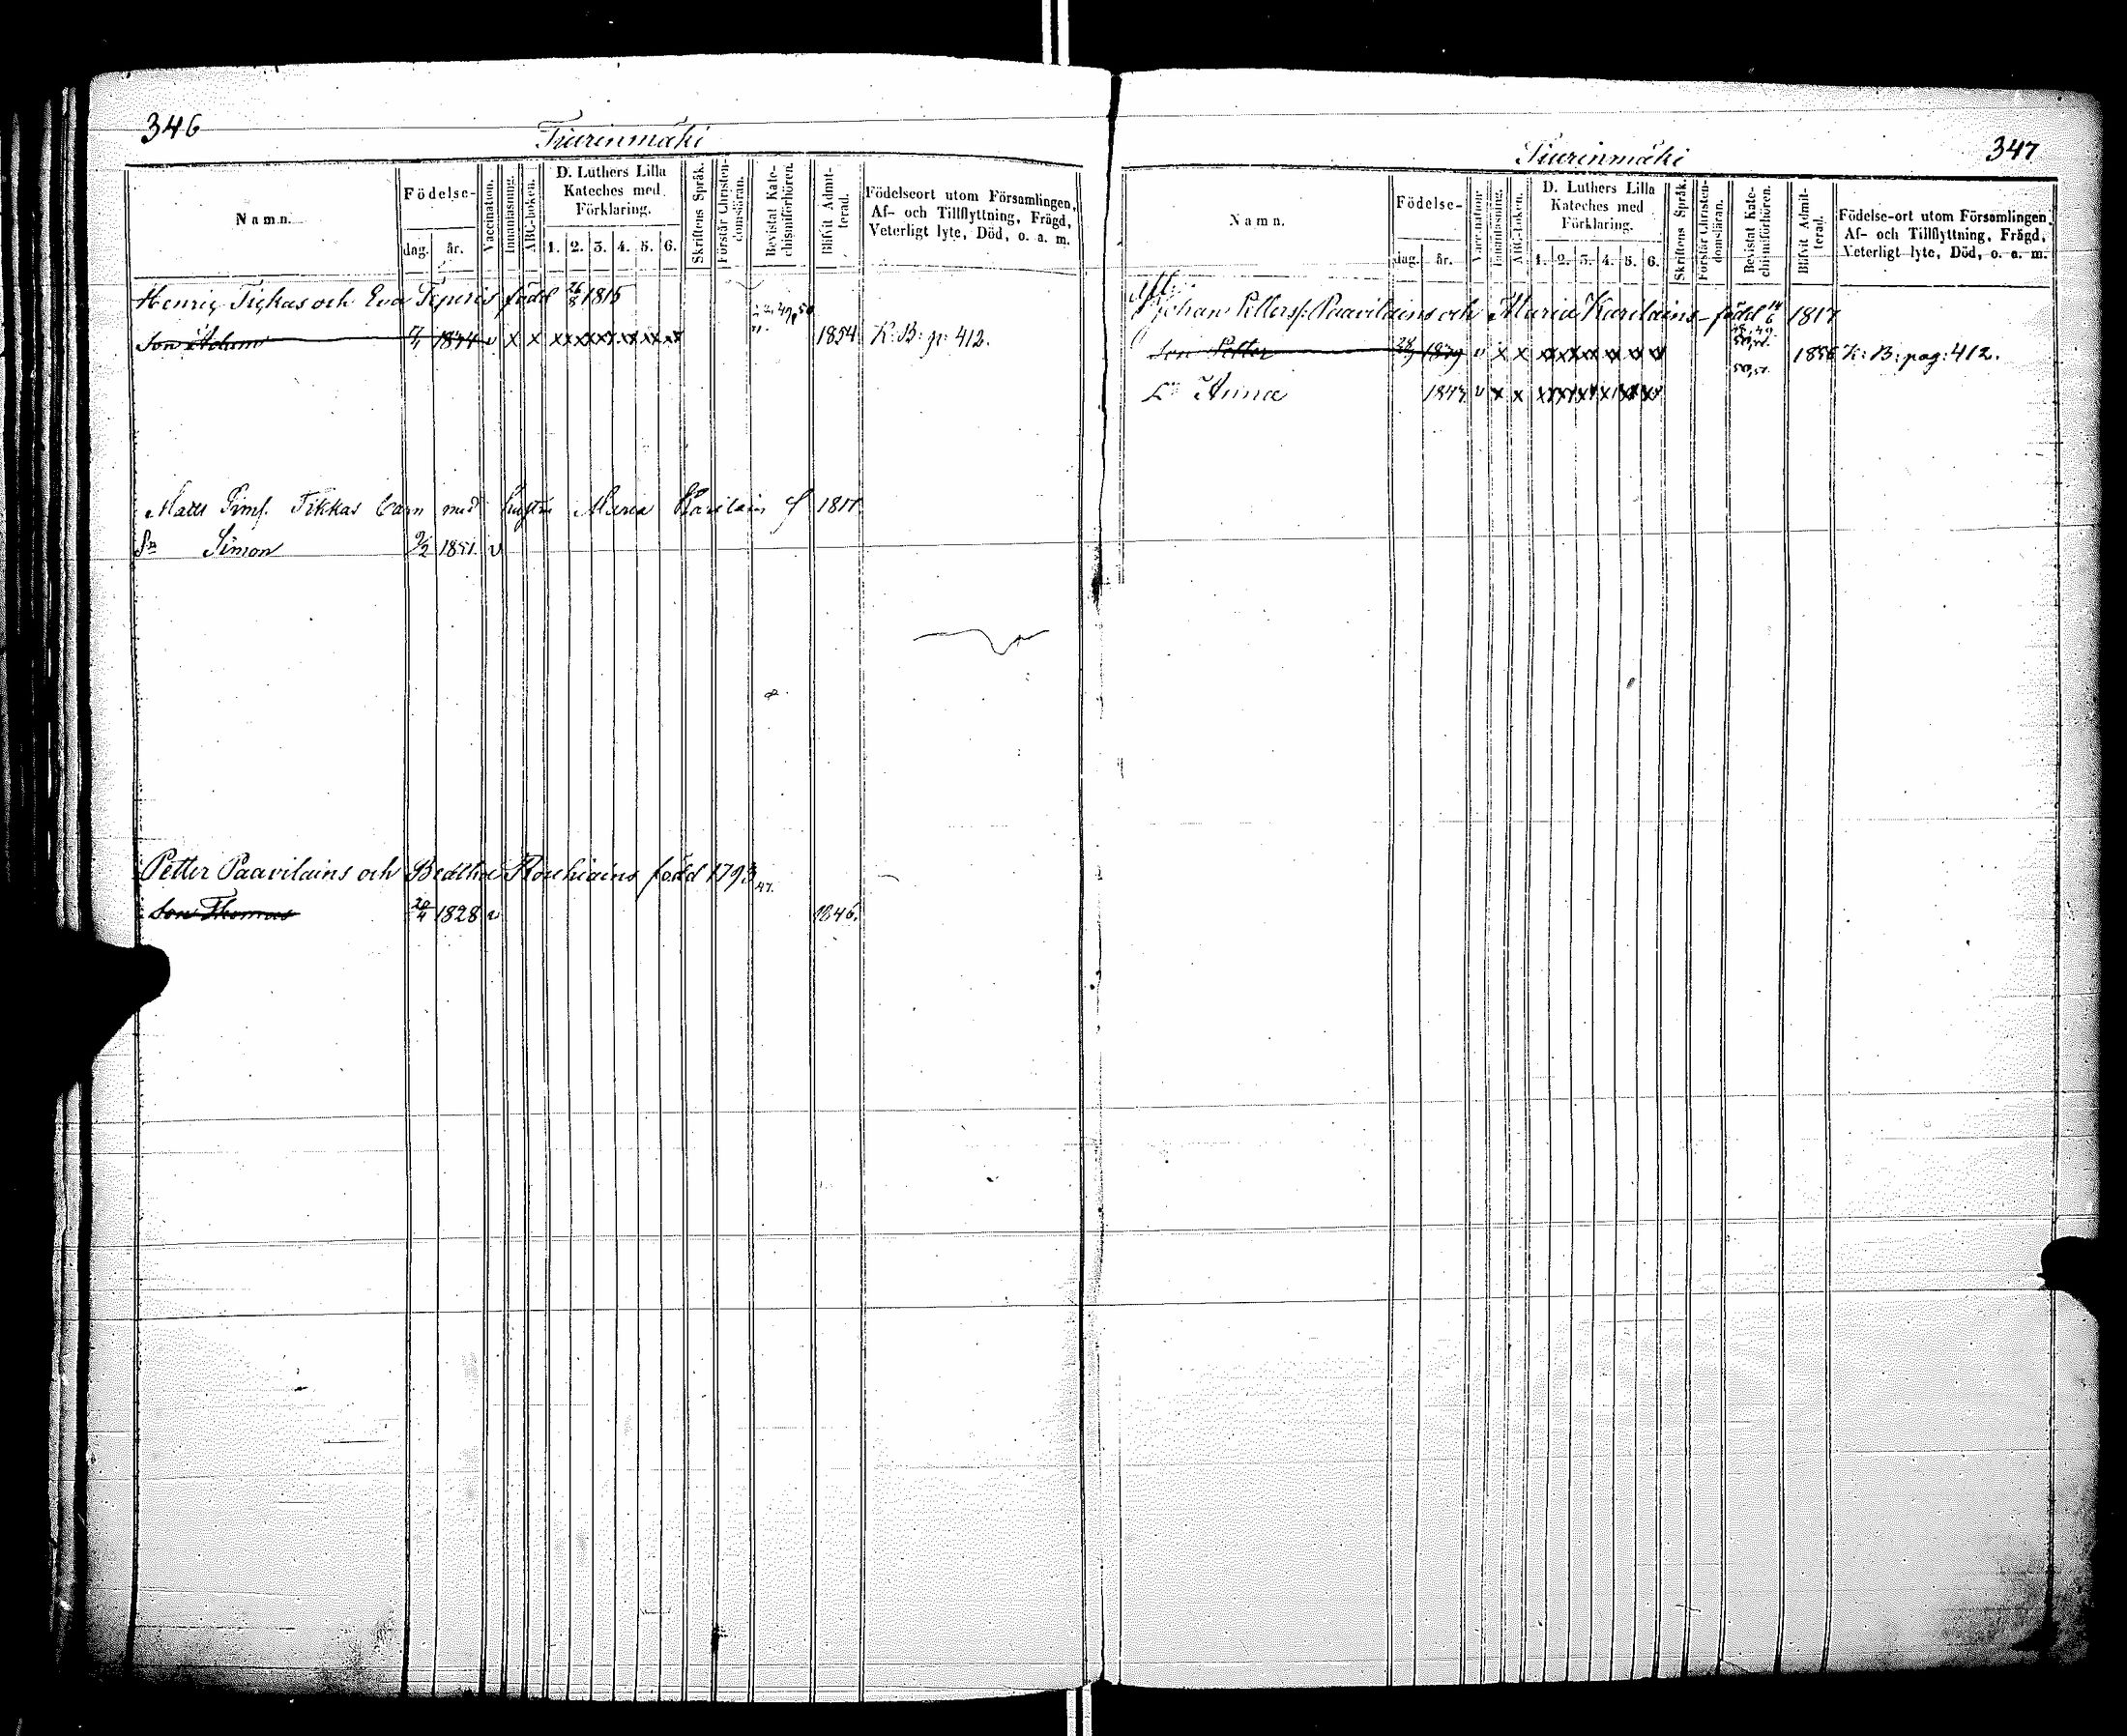 346
Tiurinmäki
Namn.
Födelse-
dag. år.
Vaccination.
Innanläsning.
ABC-boken.
D. Luthers Lilla
Kateches med
Förklaring.
1. 2. 3. 4. 5. 6.
Skriftens Språk.
Förstår Christen-
domsläran.
Bevistat Kate-
chismiförhören.
Blifvit Admit-
terad.
Födelseort utom Församlingen,
Af- och Tillflyttning, Frägd,
Veterligt lyte, Död, o. a. m.
Henric Tickas och Eva född 26/8 1815
Son Adam 1844 v x x 1854 K: B: p: 412.
Matts Tikkas barn med hustru Maria Karilain f 1817
Sn Simon 9/2 1851. v
Petter Paavilains och född 1793 47.
Son Thomas 20/4 1828 v 1846.
347
Tiurinmäki
Namn.
Födelse-
dag. år.
Vaccination.
Innanläsning.
ABC-boken.
D. Luthers Lilla
Kateches med
Förklaring.
1. 2. 3. 4. 5. 6.
Skriftens Språk.
Förstår Christen-
domsläran.
Bevistat Kate-
chismiförhören.
Blifvit Admit-
terad.
Födelse-ort utom Församlingen
Af- och Tillflyttning, Frägd,
Veterligt lyte, Död, o. a. m.
Johan Petterss. Paavilains och Maria Karilains född 14/6 1817
Son Petter 1839 v x x 1856 K: B: pag: 412.
Anna 1847 v x x 50, 51.